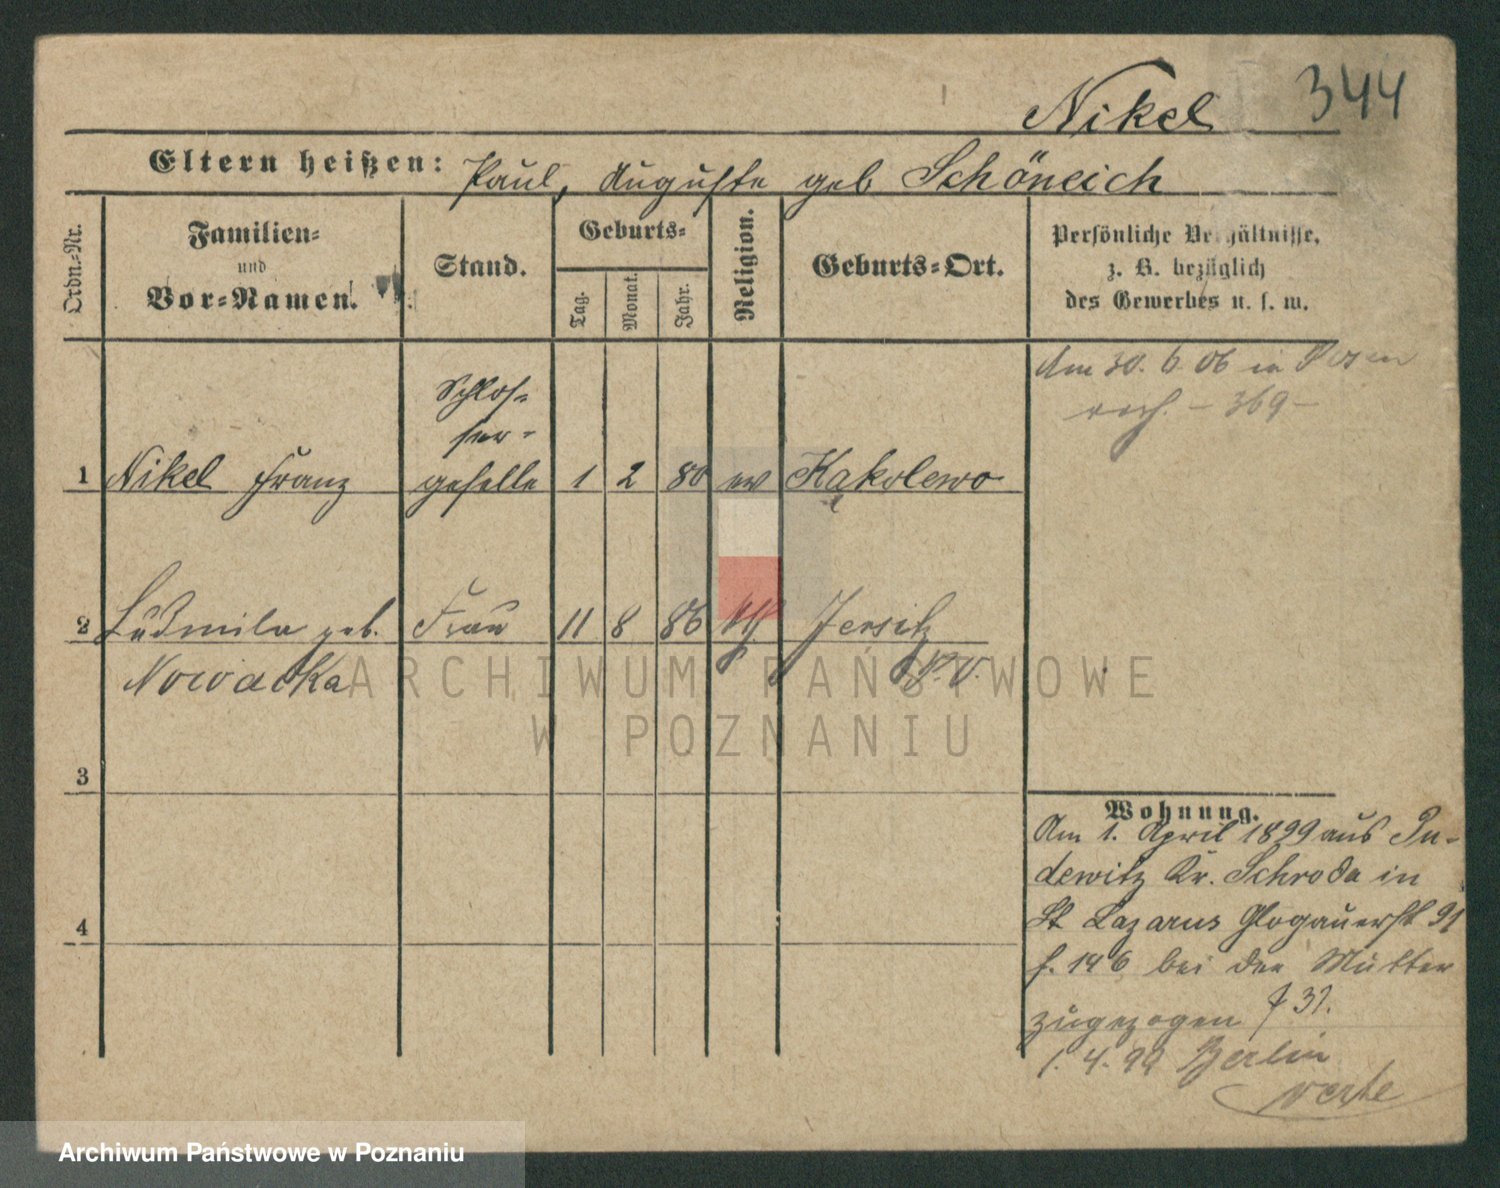 Nikel 344
Eltern heißen: Paul, Auguste geb Schöneich
Ordn.-Nr.
Familien-
und
Vor-Namen.
Stand.
Geburts-
Tag.
Monat.
Jahr.
Religion.
Geburts-Ort.
Persönliche Verhältnisse,
z. B. bezüglich
des Gewerbes u. s. w.
Am 30. 6 06 in Posen
– 369 –
Schlos-
ser-
1 Nikel Franz geselle 1 2 80 ev Kąkolewo
2 Ludmila geb. Frau 11 8 86 Jersitz
Nowacka
3
4
Wohnung.
Am 1. April 1899 aus Pu-
dewitz Kr. Schroda in
St Lazarus Glogauerstr 91
f. 146 bei der Mutter
zugezogen f 31.
1. 4. 99 Berlin
verte
ARCHIWUM PAŃSTWOWE
W POZNANIU
Archiwum Państwowe w Poznaniu